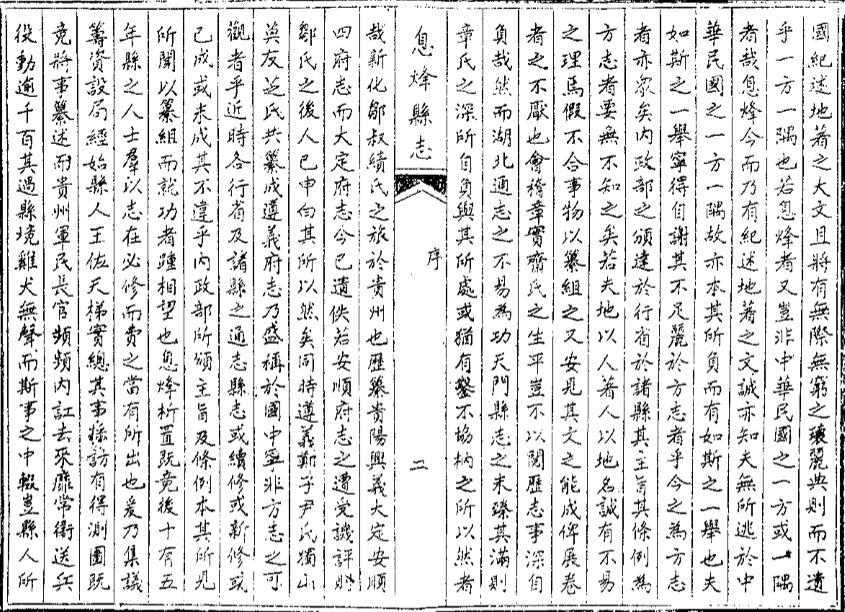 國紀述地著之大文且將有無際無窮之瓌麗典則而不遺
乎一方一隅也若息烽者又豈非中華民國之一方或一隅
者哉息烽今而乃有紀述地著之文誠亦知夫無所逃於中
華民國之一方一隅故亦本其所負而有如斯之一舉也夫
如斯之一舉寧得自謝其不足麗於方志者乎今之為方志
者亦眾矣內政部之頒達於行省於諸縣其主旨其條例為
方志者要無不知之矣若夫地以人著人以地名誠有不易
之理焉假不合事物以纂組之又安見其文之能成俾展卷
者之不厭也會稽章實齋氏之生平豈不以閱歷志事深自
負哉然而湖北通志之不易為功天門縣志之未臻其滿則
章氏之深所自負與其所處或猶有鑿不協枘之所以然者
息烽縣志
序
二
哉新化鄒叔績氏之旅於貴州也歷纂貴陽興義大定安順
四府志而大定府志今已遺佚若安順府志之遭受譏評則
鄒氏之後人已申白其所以然矣同時遵義鄭子尹氏獨山
莫友芝氏共纂成遵義府志乃盛稱於國中寧非方志之可
觀者乎近時各行省及諸縣之通志縣志或續修或新修或
已成或未成其不違乎內政部所頒主旨及條例本其所見
所聞以纂組而就功者踵相望也息烽析置既竟後十有五
年縣之人士羣以志在必修而費之當有所出也爰乃集議
籌資設局經始縣人王佐天梯實總其事採訪有得測圖既
竟將事纂述而貴州軍民長官頻頻內訌去來靡常衝送兵
役動逾千百其過縣境雞犬無聲而斯事之中輟豈縣人所